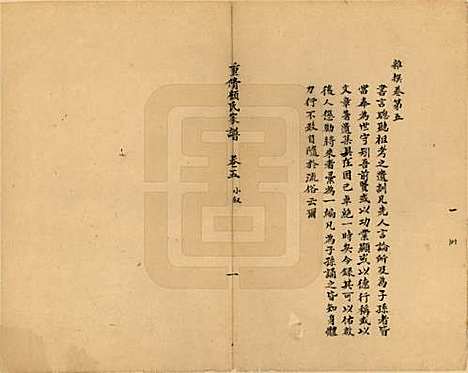 雜撰卷第五
書言聰聽祖考之遺訓凡先人言論所及為子孫者皆
當奉為世守矧吾前賢或以功業顯或以德行稱或以
文章著遺集具在固已卓絕一時矣今錄其可以佑啟
後人懲勸將來者彙為一編凡為子孫誦之皆知身體
力行不致自隨於流俗云爾
重脩顧氏家譜 卷五 小敘 一